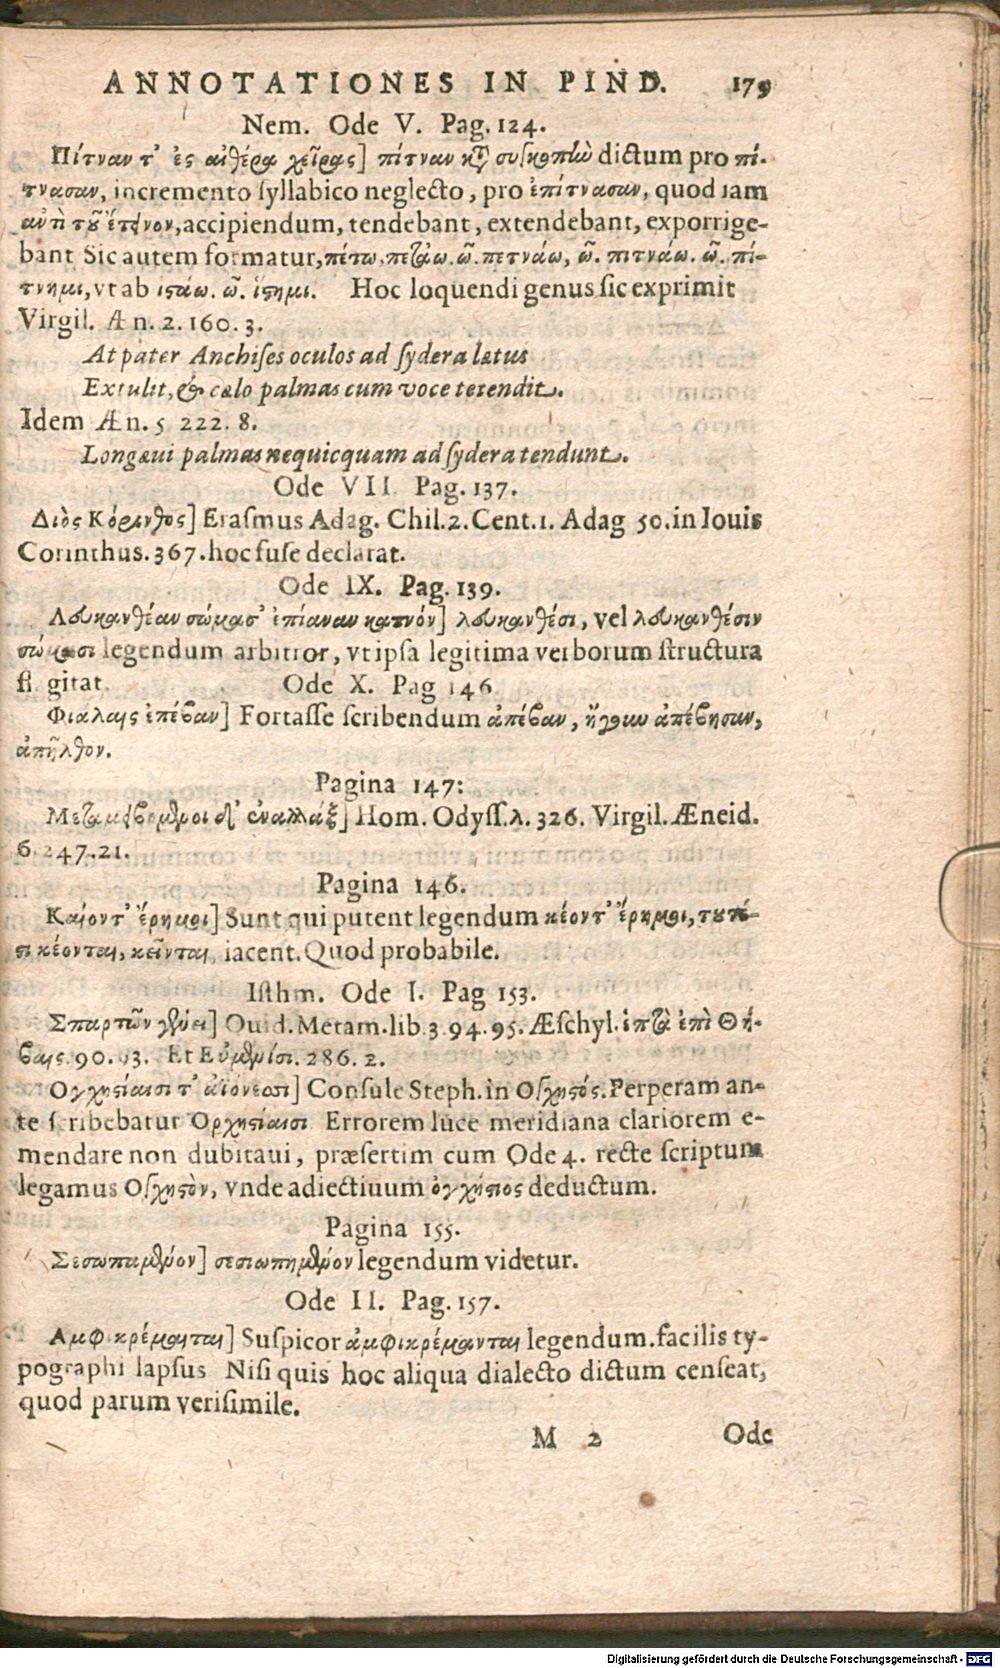 ANNOTATIONES IN PIND. 179
Nem. Ode V. Pag. 124.
Πίτναν τ' ἐς αἰθέρα χεῖρας] πίτναν κτ̃ συγκοπὶω dictum pro πί-
τνασαν, incremento ſyllabico neglecto, pro ἐπίτνασαν, quod iam
ἀντὶ τοῦ ἔτεινον, accipiendum, tendebant, extendebant, exporrige-
bant Sic autem formatur, πέτω, πετάω. ῶ. πετνάω, ῶ. πιτνάω. ῶ. πί-
τνημι, vt ab ἱϛάω. ῶ. ἵϛημι. Hoc loquendi genus ſic exprimit
Virgil. Æn. 2. 160. 3.
At pater Anchiſes oculos ad ſydera lætus
Extulit, & cælo palmas cum voce tetendit.
Idem Æn. 5 222. 8.
Longæui palmas nequicquam ad ſydera tendunt.
Ode VII. Pag. 137.
Διὸς Κόρινθος] Eraſmus Adag. Chil. 2. Cent. 1. Adag 50. in Iouis
Corinthus. 367. hoc fuſe declarat.
Ode IX. Pag. 139.
Λευκανθέαν σώμασ' ἐπίαναν καπνόν] λευκανθέσι, vel λευκανθέσιν
σώμασι legendum arbitror, vt ipſa legitima verborum ſtructura
fl gitat. Ode X. Pag 146
Φιάλαις ἐπέβαν] Fortaſſe ſcribendum ἀπέβαν, ἤγουν ἀπέβησαν,
ἀπῆλθον.
Pagina 147:
Μεταμειβόμενοι δ' ἐναλλάξ] Hom. Odyſſ. λ. 326. Virgil. Æneid.
6 247. 21.
Pagina 146.
Καίοντ' ἔρημοι] Sunt qui putent legendum κέοντ' ἔρημοι, τουτέ-
ϛι κέονται, κεῖνται, iacent. Quod probabile.
Iſthm. Ode I. Pag 153.
Σπαρτῶν γένει] Ouid. Metam. lib. 3. 94. 95. Æſchyl. ἑπτὰ ἐπὶ Θή-
βαις. 90. 93. Et Εὐμενίσι. 286. 2.
Ογχηϛίαισι τ' ἀϊόνεσσι] Conſule Steph. in Ογχηϛός. Perperam an-
te ſcribebatur Ὀρχηϛίαισι Errorem luce meridiana clariorem e-
mendare non dubitaui, præſertim cum Ode 4. recte ſcriptum
legamus Ογχηϛὸν, vnde adiectiuum ὀγχήϛιος deductum.
Pagina 155.
Σεσωπαμένον] σεσιωπημένον legendum videtur.
Ode II. Pag. 157.
Αμφικρέμαται] Suſpicor ἀμφικρέμανται legendum. facilis ty-
pographi lapſus Niſi quis hoc aliqua dialecto dictum cenſeat,
quod parum veriſimile.
M 2 Ode
Digitalisierung gefördert durch die Deutsche Forschungsgemeinschaft - DFG